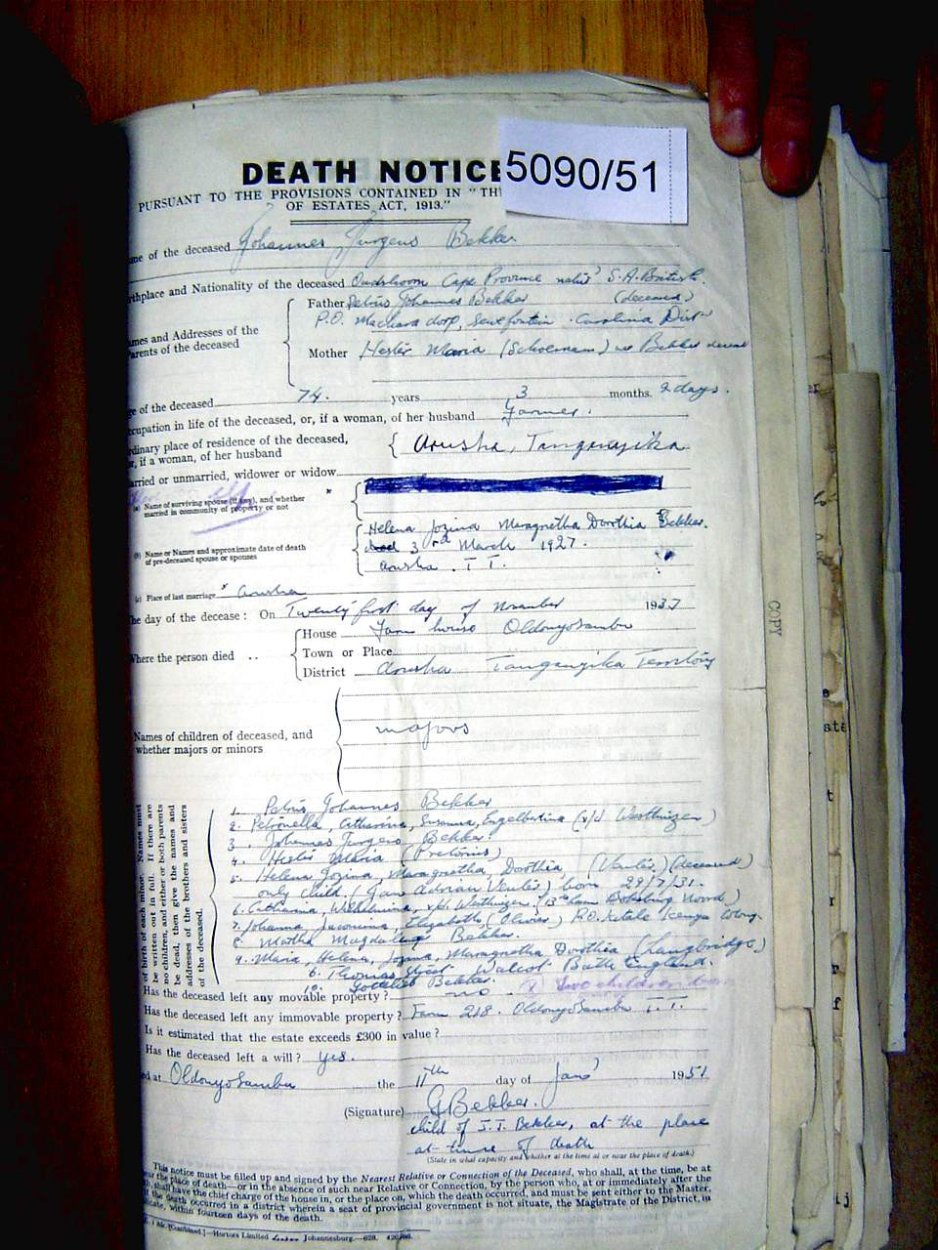 DEATH NOTICE
5090/51
PURSUANT TO THE PROVISIONS CONTAINED IN "TH
OF ESTATES ACT, 1913."
me of the deceased Johannes Jurgens Bekker
rthplace and Nationality of the deceased Oudtshoorn Cape Province S.A. British
Father Petrus Johannes Bekker (deceased)
mes and Addresses of the
rents of the deceased
P.O. Machadodorp, Carolina Dist
Mother Hester Maria (Schoeman) Bekker
ge of the deceased 74. years 3 months. 2 days.
ccupation in life of the deceased, or, if a woman, of her husband Farmer.
rdinary place of residence of the deceased,
r, if a woman, of her husband
Arusha, Tanganyika
arried or unmarried, widower or widow
(a) Name of surviving spouse (if any), and whether
married in community of property or not
(b) Name or Names and approximate date of death
of pre-deceased spouse or spouses
Helena Jozina Maragnetha Dorthia Bekker.
3rd March 1927.
Arusha. T.T.
(c) Place of last marriage Arusha
he day of the decease: On Twenty first day of November 1937
House Farm Oldonyosambu
here the person died ..
Town or Place
District Arusha Tanganyika Territory
Names of children of deceased, and
whether majors or minors
majors
of birth of each minor. Names must
be written out in full. If there are
no children, and either or both parents
be dead, then give the names and
addresses of the brothers and sisters
of the deceased.
1. Petrus Johannes Bekker
2. Petronella, Catharina, Susanna, Engelbertina (v/d Westhuizen)
3. Johannes Jurgens Bekker.
4. Hester Maria (Pretorius)
5. Helena Jozina, Maragnetha, Dorthia, (Venter) (deceased)
only child (Jan Adrian Venter) born 29/7/31.
6. Catharina, Wilhelmina, v/d Westhuizen
7. Johanna, Jacomina, Elizabeth (Olivier) P.O. Kitale Kenya Colony
8. Martha Magdalena Bekker.
9. Maria, Helena, Jozina, Maragnetha Dorothia (Langbridge)
6. Thomas Street Walcot Bath England.
10. Gottlieb Bekker.
Has the deceased left any movable property? no two children
Has the deceased left any immovable property? Farm 218. Oldonyosambu T.T.
Is it estimated that the estate exceeds £300 in value?
Has the deceased left a will? yes.
ed at Oldonyosambu the 11th day of Jan 1951
(Signature) G Bekker.
child of J.J. Bekker, at the place
at time of death
(State in what capacity and whether at the time at or near the place of death.)
This notice must be filled up and signed by the Nearest Relative or Connection of the Deceased, who shall, at the time, be at
the place of death—or in the absence of such near Relative or Connection, by the person who, at or immediately after the
shall have the chief charge of the house in, or the place on, which the death occurred, and must be sent either to the Master,
the death occurred in a district wherein a seat of provincial government is not situate, the Magistrate of the District, in
within fourteen days of the death.
Hortors Limited Johannesburg
COPY